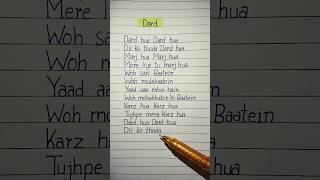 Dard
Dard hua Dard hua
Dil ko thoda Dard hua
Marj hua Marj hua
Mere liye tu marj hua
Woh sari Raatein
Woh mulakaatein
Yaad aaa rahin hain
Woh mohabbaton ki Baatein
Karz hua Karz hua
Tujhpe mera Karz hua
Dard hua Dard hua
Dil ko thoda
Mere
Woh sari
Woh
Yaad
Woh moh
Karz
Tujhpe
Dard hua
Dil ko